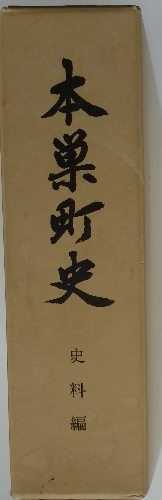 本巣町史
史料編